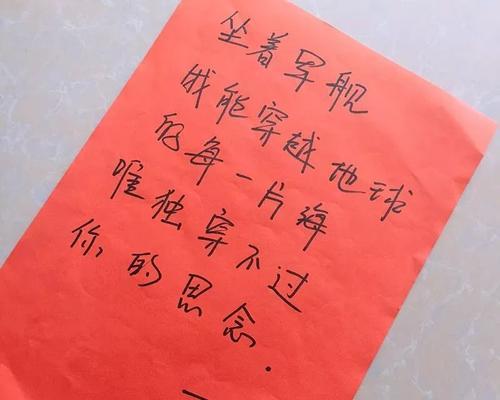 坐着军舰
我能穿越地球
的每一片海
唯独穿不过
你的思念.